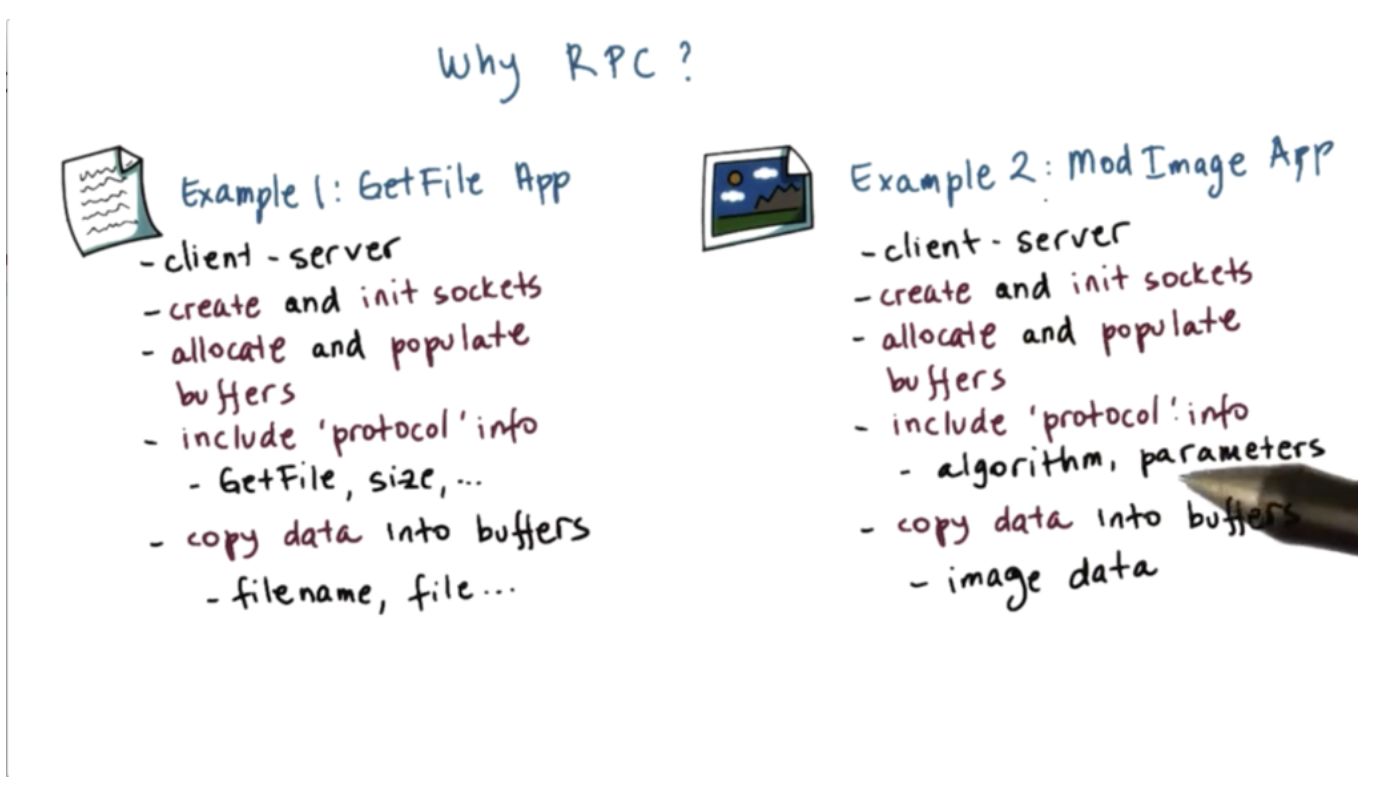 Why RPC?
Example 1: GetFile App
- client - server
- create and init sockets
- allocate and populate
buffers
- include 'protocol' info
- GetFile, size, ...
- copy data into buffers
- filename, file...
Example 2: Mod Image App
- client - server
- create and init sockets
- allocate and populate
buffers
- include 'protocol' info
- algorithm, parameters
- copy data into buffers
- image data